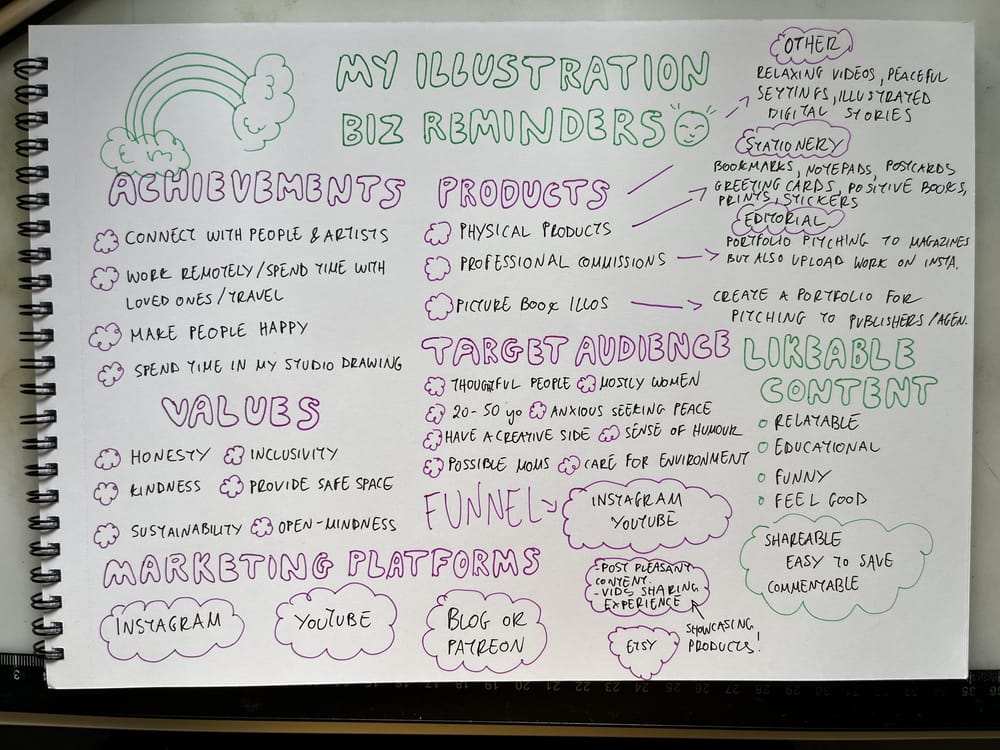 MY ILLUSTRATION
BIZ REMINDERS
ACHIEVEMENTS
CONNECT WITH PEOPLE & ARTISTS
WORK REMOTELY/SPEND TIME WITH
LOVED ONES/TRAVEL
MAKE PEOPLE HAPPY
SPEND TIME IN MY STUDIO DRAWING
VALUES
HONESTY INCLUSIVITY
KINDNESS PROVIDE SAFE SPACE
SUSTAINABILITY OPEN-MINDNESS
PRODUCTS
PHYSICAL PRODUCTS
PROFESSIONAL COMMISSIONS
PICTURE BOOK ILLOS
OTHER
RELAXING VIDEOS, PEACEFUL
SETTINGS, ILLUSTRATED
DIGITAL STORIES
STATIONERY
BOOKMARKS, NOTEPADS, POSTCARDS
GREETING CARDS, POSITIVE BOOKS,
PRINTS, STICKERS
EDITORIAL
PORTFOLIO PITCHING TO MAGAZINES
BUT ALSO UPLOAD WORK ON INSTA.
CREATE A PORTFOLIO FOR
PITCHING TO PUBLISHERS/AGEN.
TARGET AUDIENCE
THOUGTFUL PEOPLE MOSTLY WOMEN
20-50 yo ANXIOUS SEEKING PEACE
HAVE A CREATIVE SIDE SENSE OF HUMOUR
POSSIBLE MOMS CARE FOR ENVIRONMENT
LIKEABLE
CONTENT
RELATABLE
EDUCATIONAL
FUNNY
FEEL GOOD
SHAREABLE
EASY TO SAVE
COMMENTABLE
FUNNEL
INSTAGRAM
YOUTUBE
-POST PLEASANT
CONTENT.
-VIDS SHARING
EXPERIENCE
SHOWCASING
PRODUCTS!
ETSY
MARKETING PLATFORMS
INSTAGRAM
YOUTUBE
BLOG OR
PATREON